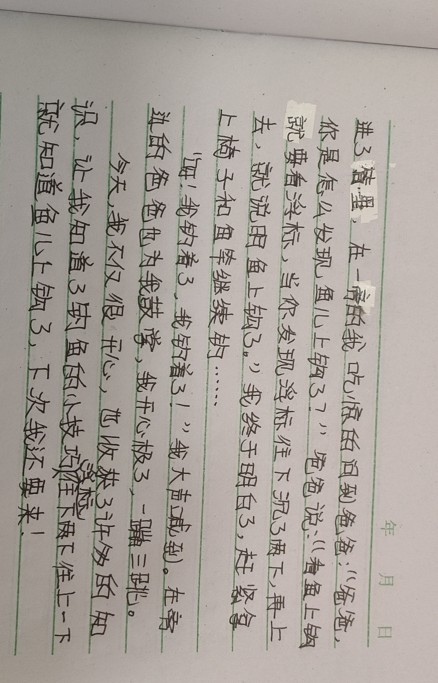 年 月 日
进了猪里，在一旁的我吃惊的问到爸爸：“爸爸，
你是怎么发现鱼儿上钩了？”爸爸说：“看鱼上钩
就要看浮标，当你发现浮标往下沉了两下，再上
去，就说明鱼上钩了。”我终于明白了，赶紧拿
上椅子和鱼竿继续钓……
“哇！我钓着了，我钓着了！”我大声减到。在旁
边的爸爸也为我鼓掌，我开心极了，一蹦三跳。
今天，我不仅很开心，也收获了许多的知
识，让我知道了钓鱼的小技巧，浮标往下两下往上一下
就知道鱼儿上钩了，下次我还要来！